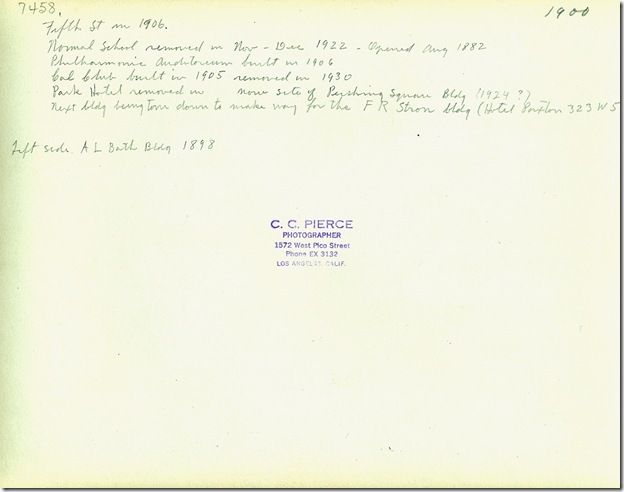 7458.
1900
Fifth St in 1906.
Normal School removed in Nov - Dec 1922 - Opened Aug 1882
Philharmonic Auditorium built in 1906
Cal Club built in 1905 removed in 1930
Park Hotel removed in now site of Pershing Square Bldg (1924?)
Next bldg being torn down to make way for the F R Stron bldg (Hotel Paxton 323 W 5
Left side. A L Bath Bldg 1898
C. C. PIERCE
PHOTOGRAPHER
1572 West Pico Street
Phone EX 3132
LOS ANGELES, CALIF.